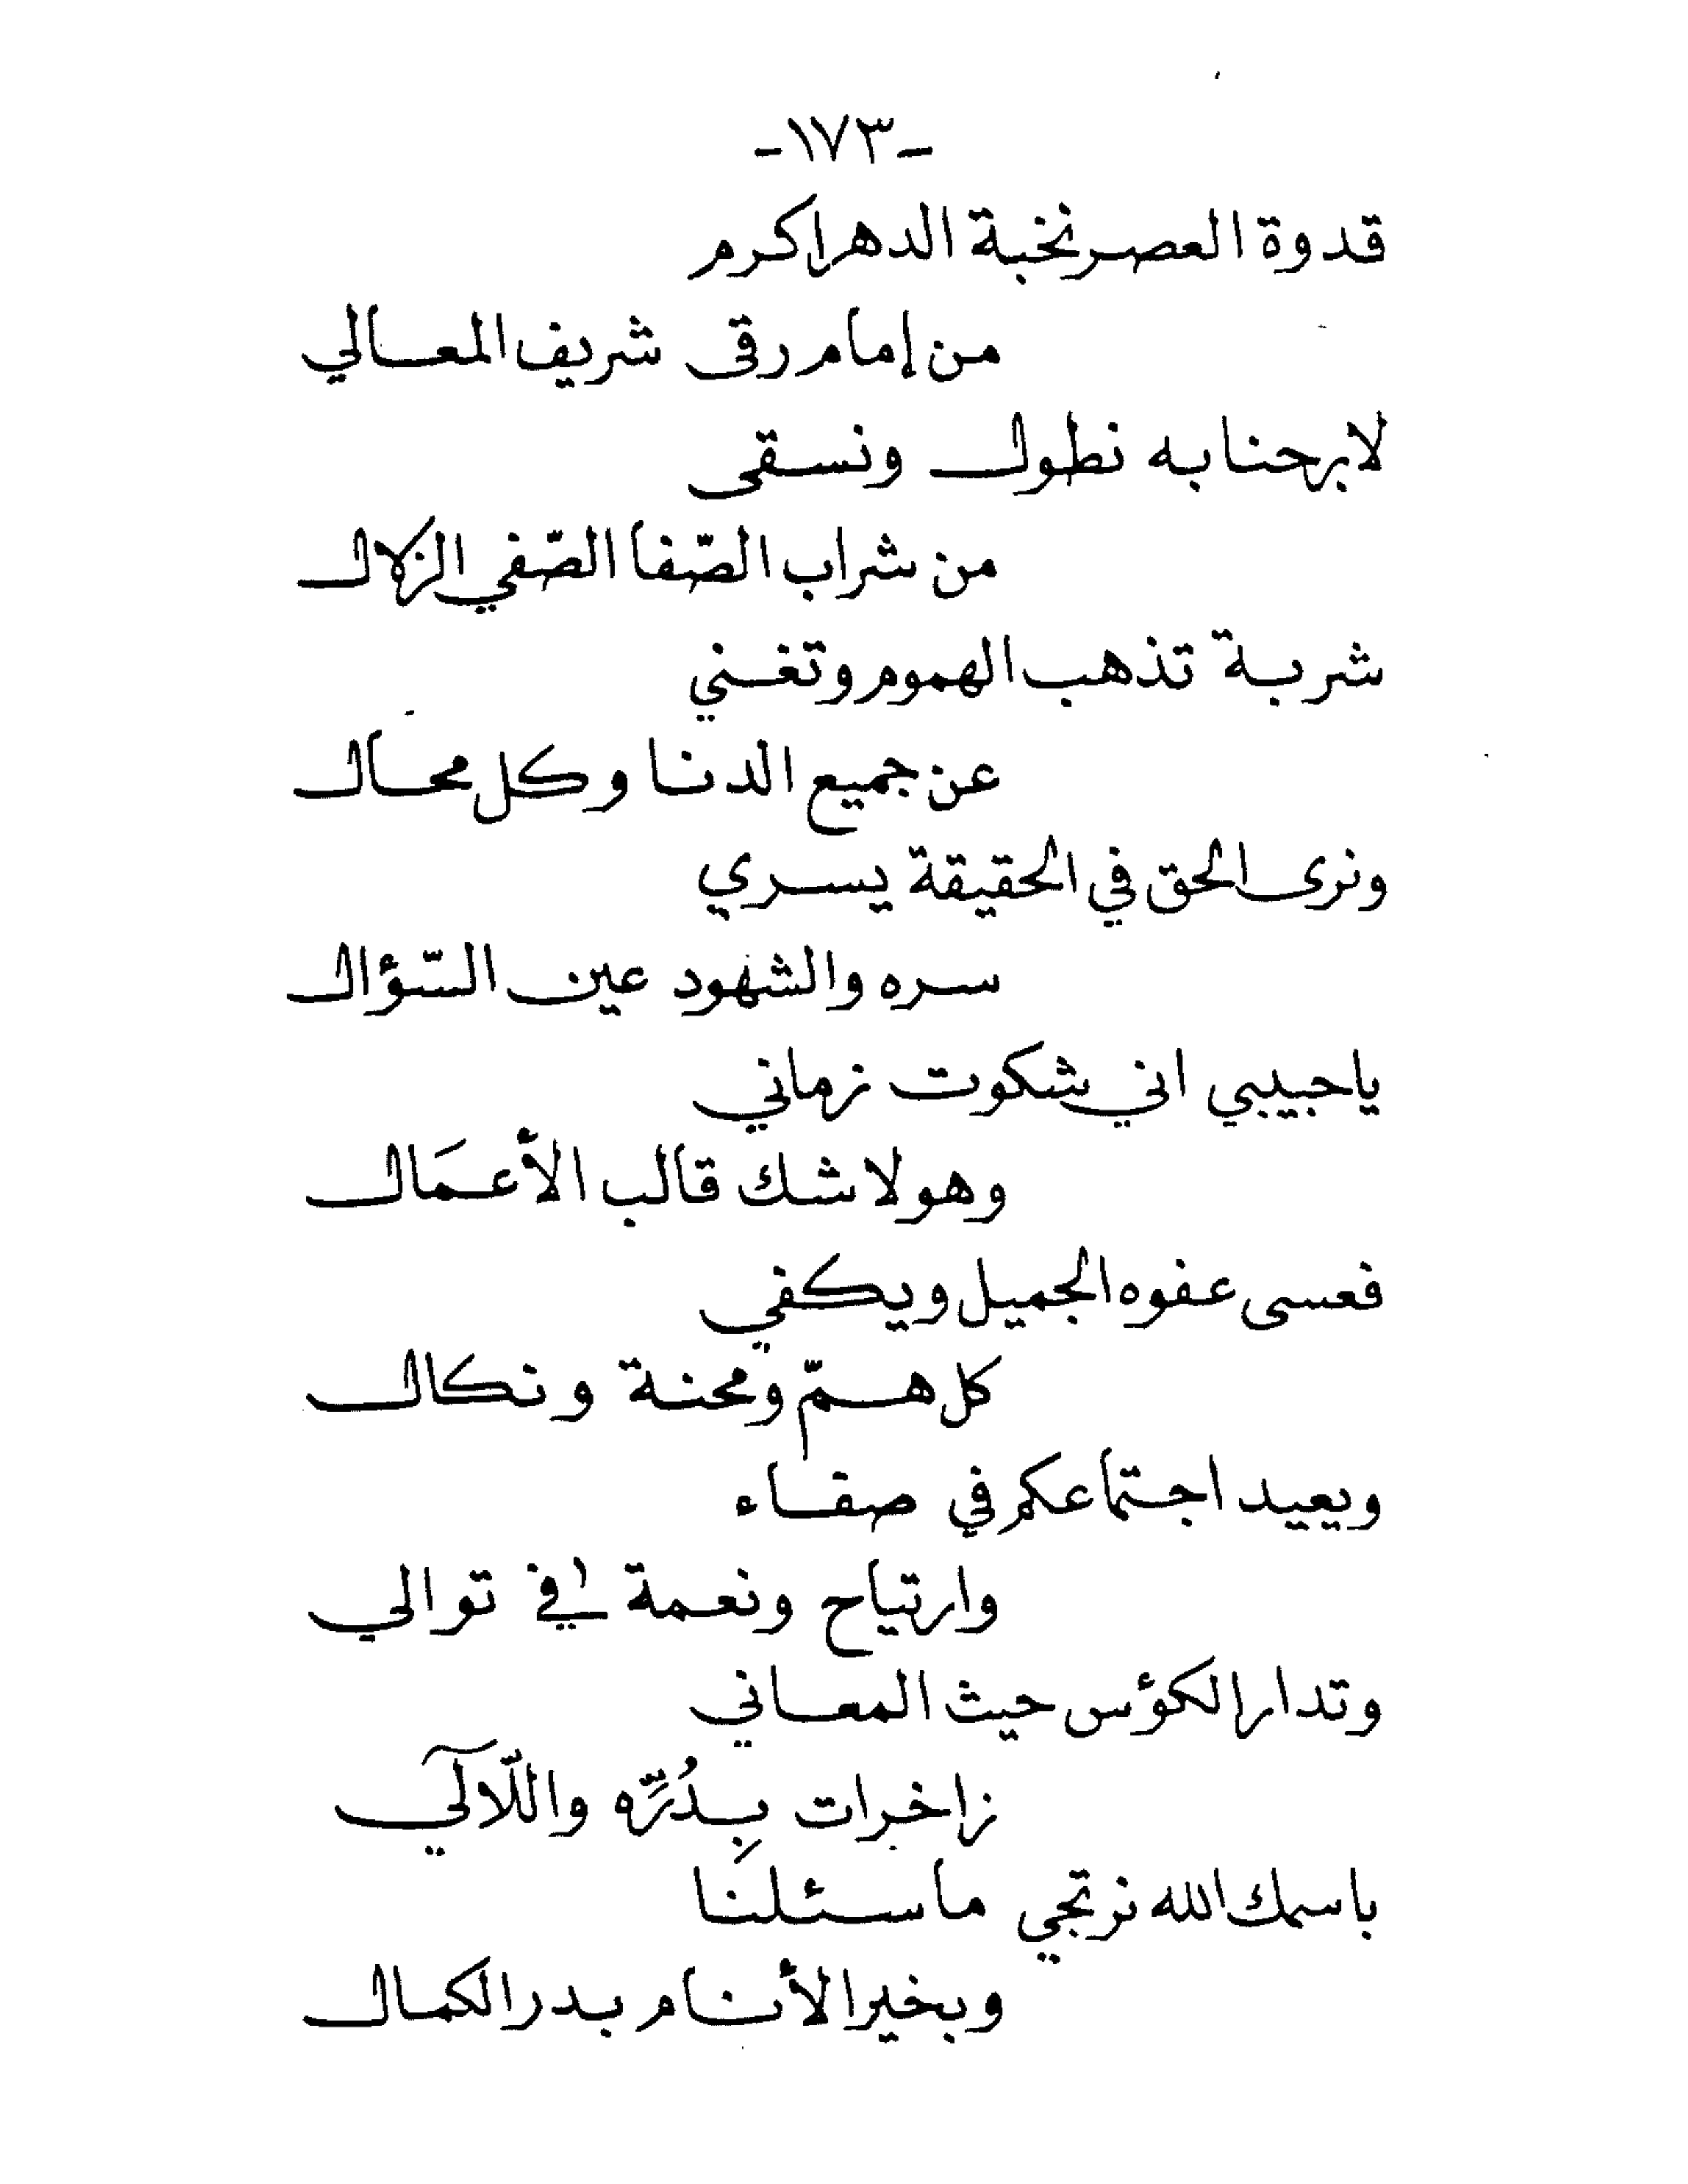 -١٧٣-
قدوة العصر نخبة الدهر اكرم
من إمام رقى شريف المعالي
لا برحنا به نطول ونسقى
من شراب الصّفا الصّفي الزلال
شربة تذهب الهموم وتغني
عن جميع الدنا وكل محال
ونرى الحق في الحقيقة يسري
سره والشهود عين السّؤال
يا حبيبي اني شكوت زماني
وهو لا شك قالب الأعمَال
فعسى عفوه الجميل ويكفي
كل همّ ومحنة ونكال
ويعيد اجتماعكم في صفاء
وارتياح ونعمة في توالي
وتدار الكؤس حيث المعاني
زاخرات بِدُرِّه واللّآلي
باسمك الله نرتجي ما سئلنا
وبخير الأنام بدر الكمال